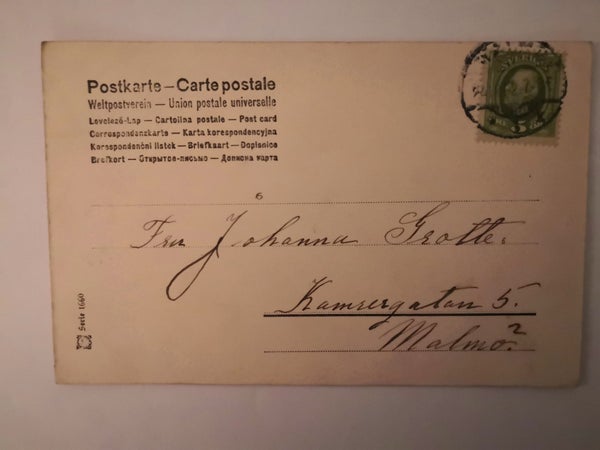 Postkarte – Carte postale
Weltpostverein – Union postale universelle
Levelező-Lap – Cartolina postale – Post card
Correspondenzkarte – Karta korespondencyjna
Korespondenční listek – Briefkaart – Dopisnice
Brefkort – Открытое-письмо – Дописна карта
SVERIGE
5
6
Fru Johanna Grotte.
Kamrergatan 5.
Malmö.
Serie 1660